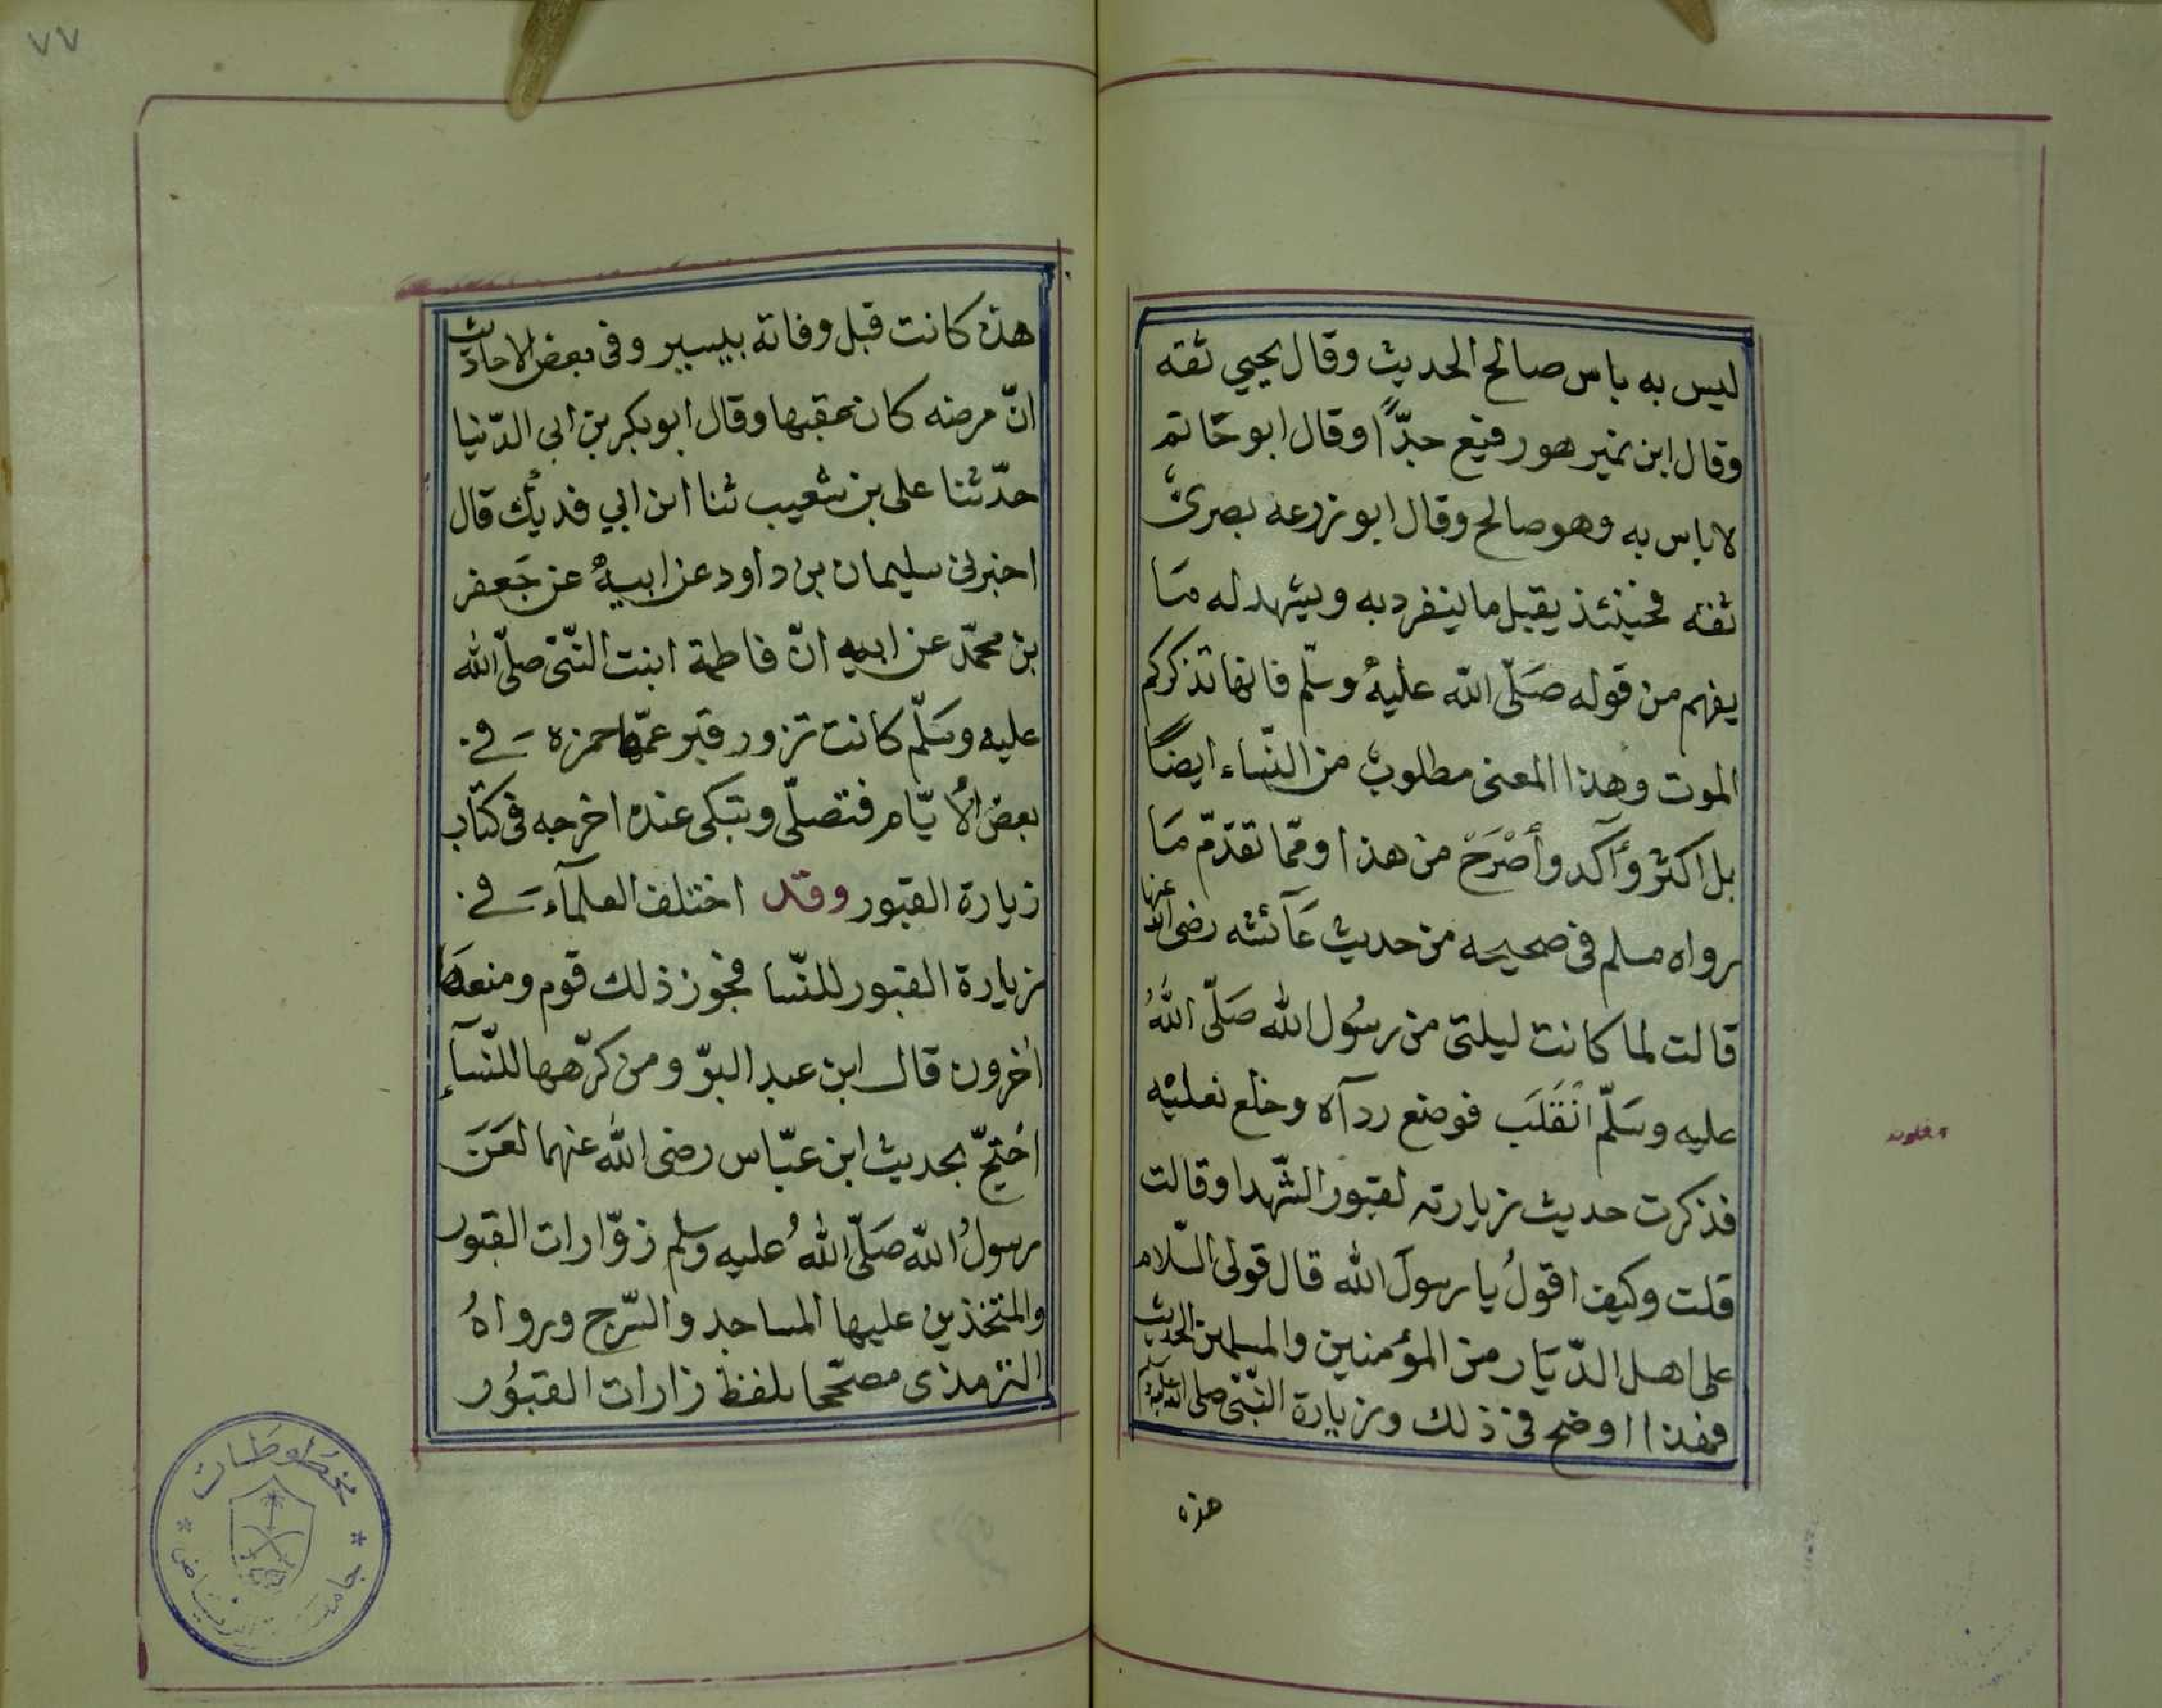 ليس به باس صالح الحديث وقال يحيي ثقه
وقال ابن نمير هو رفيع جدّاً وقال ابو حَاتم
لا باس به وهو صالح وقال ابو زرعه بصرىٌّ
ثقه فحينئذ يقبل ما ينفرد به ويشهد له مَا
يفهم من قوله صَلّى الله عليهْ وسلّم فانها تذكركم
الموت وهذا المعنى مطلوبٌ من النّساء ايضًا
بل اكثر وآكد وأصْرَحْ من هذا وممّا تقدّم مَا
رواه مسلم فى صحيحه من حديث عَآئشه رضى الله عنها
قالت لما كانت ليلتى من رسُول الله صَلّى اللهُ
عليه وسَلّم انْقَلَبَ فوضع ردآه وخلع نعليْه
فذكرت حديث زيارته لقبور الشّهدا وقالت
قلت وكيف اقولُ يا رسولَ الله قال قولى السّلام
على اهل الدّيَار من المؤمنين والمسلمين الحديث
فهذا اوضح فى ذلك وزيارة النّبىّ صلى الله عليه وسلم
هذه
٧٧
هذه كانت قبل وفاته بيسير وفى بعض الاحاديث
انّ مرضه كان عقبها وقال ابو بكر بن ابى الدّنيا
حدّثنا على بن شعيب ثنا ابن ابي فديك قال
اخبرنى سليمان بن داود عن ابيهْ عن جَعفر
بن محمّد عن ابيه انّ فاطمة ابنت النّبىّ صلّى الله
عليه وسَلّم كانت تزور قبر عمّها حمزه فى
بعض الأيّام فتصلّى وتبكى عنده اخرجه فى كتاب
زيارة القبور وقد اختلف العلمآء فى
زيارة القبور للنّسا فجوز ذلك قوم ومنعها
آخرون قال ابن عبد البرّ ومن كرّهها للنّسآء
احتجّ بحديث ابن عبّاس رضى الله عنهما لعَنَ
رسولُ الله صَلّى اللهُ عليه وسلم زوّارات القبور
والمتخذين عليها المساجد والسّرج ورواهُ
الترمذى مصحّحا بلفظ زارات القبُور
مخطوطات
جامعة الرياض